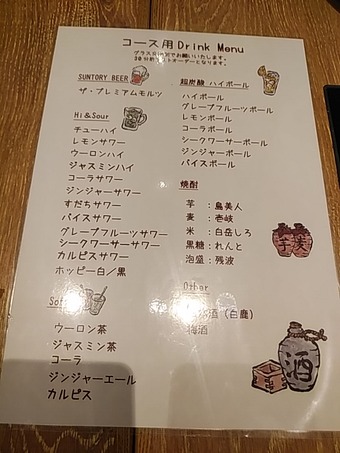 コース用 Drink Menu
グラス交換制でお願いいたします。
30分前ラストオーダーとなります。
SUNTORY BEER
ザ・プレミアムモルツ
Hi&Sour
チューハイ
レモンサワー
ウーロンハイ
ジャスミンハイ
コーラサワー
ジンジャーサワー
すだちサワー
バイスサワー
グレープフルーツサワー
シークワーサーサワー
カルピスサワー
ホッピー白/黒
Sof
ウーロン茶
ジャスミン茶
コーラ
ジンジャーエール
カルピス
超炭酸 ハイボール
ハイボール
グレープフルーツボール
レモンボール
コーラボール
シークワーサーボール
ジンジャーボール
バイスボール
焼酎
芋 :島美人
麦 :壱岐
米 :白岳しろ
黒糖:れんと
泡盛:残波
芋 麦
Other
酒(白鹿)
梅酒
酒